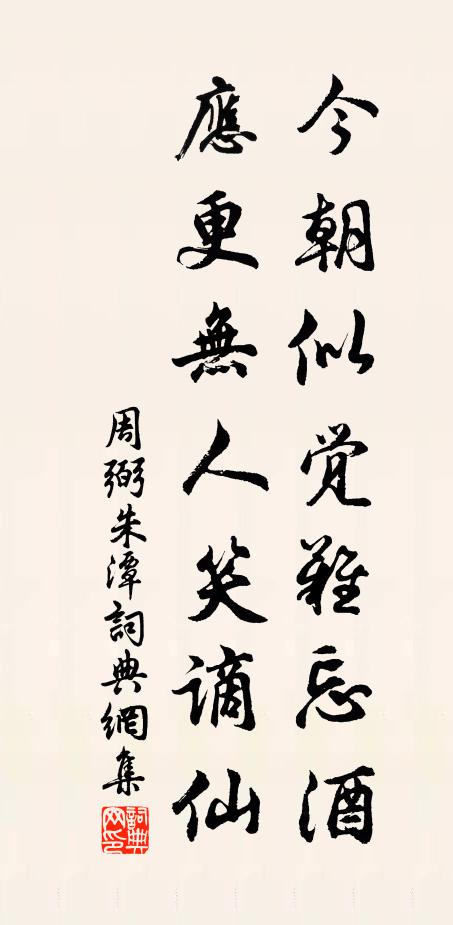 今朝似覚難忘酒
應更無人笑謫仙
周弼朱潭詞典網集
詞典网印